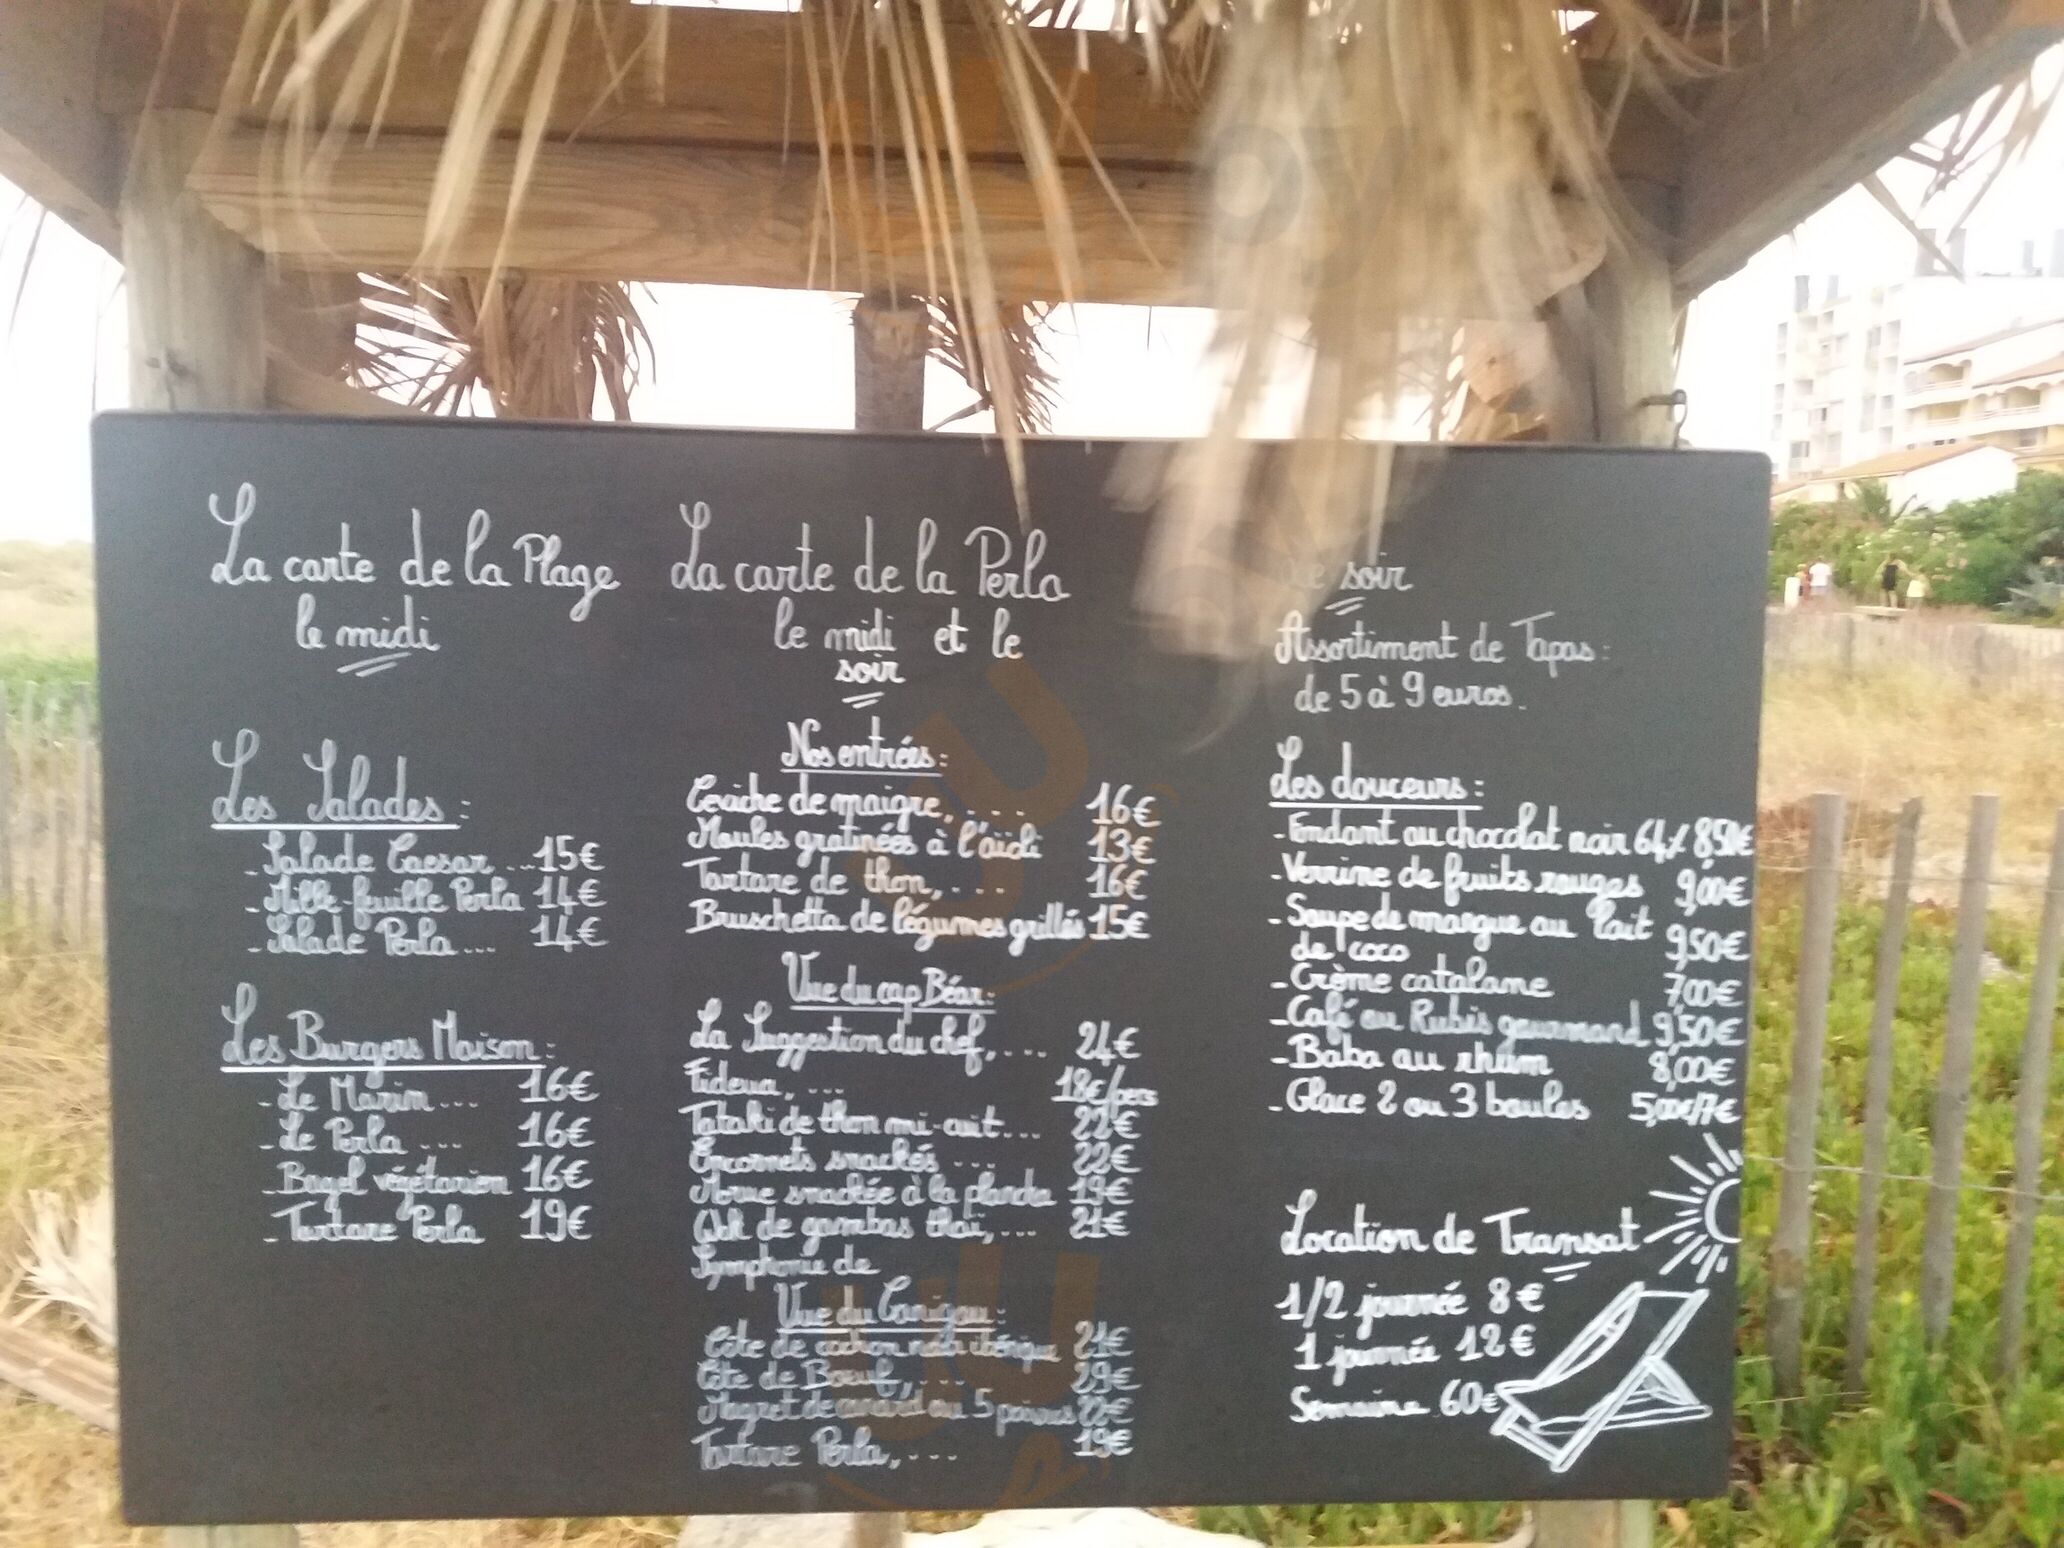 La carte de la Plage
le midi
Les Salades :
- Salade Caesar ... 15€
- Mille-feuille Perla 14€
- Salade Perla ... 14€
Les Burgers Maison :
- Le Marin ... 16€
- Le Perla ... 16€
- Bagel végétarien 16€
- Tartare Perla 19€
La carte de la Perla
le midi et le
soir
Nos entrées :
Ceviche de maigre, ... 16€
Moules gratinées à l'aïoli 13€
Tartare de thon, ... 16€
Bruschetta de légumes grillés 15€
Vue du cap Béar :
La Suggestion du chef, ... 24€
Fideua, ... 18€/pers
Tataki de thon mi-cuit ... 22€
Encornets snackés ... 22€
Morue snackée à la plancha 19€
Wok de gambas thaï, ... 21€
Symphonie de
Vue du Canigou :
Côte de cochon noir ibérique 21€
Côte de Boeuf, ... 29€
Magret de canard au 5 poivres 22€
Tartare Perla, ... 19€
Le soir
Assortiment de Tapas :
de 5 à 9 euros.
Les douceurs :
- Fondant au chocolat noir 64% 8,50€
- Verrine de fruits rouges 9,00€
- Soupe de mangue au lait
de coco 9,50€
- Crème catalane 7,00€
- Café ou Rubis gourmand 9,50€
- Baba au rhum 8,00€
- Glace 2 ou 3 boules 5,00€/7€
Location de Transat
1/2 journée 8€
1 journée 12€
Semaine 60€